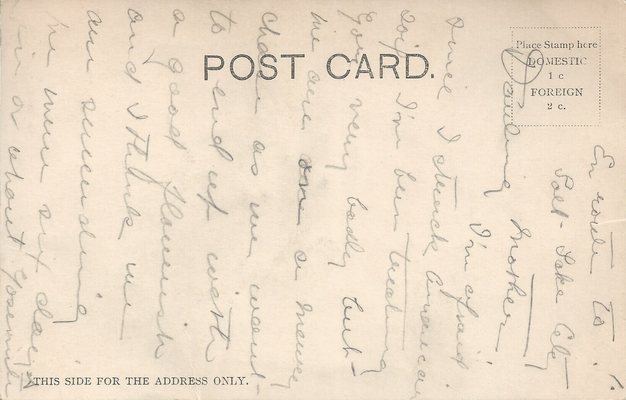 POST CARD.
Place Stamp here
DOMESTIC
1 c
FOREIGN
2 c.
THIS SIDE FOR THE ADDRESS ONLY.
En route to
Salt-Lake City
Darling Mother,
I'm afraid
since I struck America
I've been treating
you very badly but-
we are on a
as we want-
to end up with
a good flourish
and I think we
are succeeding
we were six days
in or about Yosemite